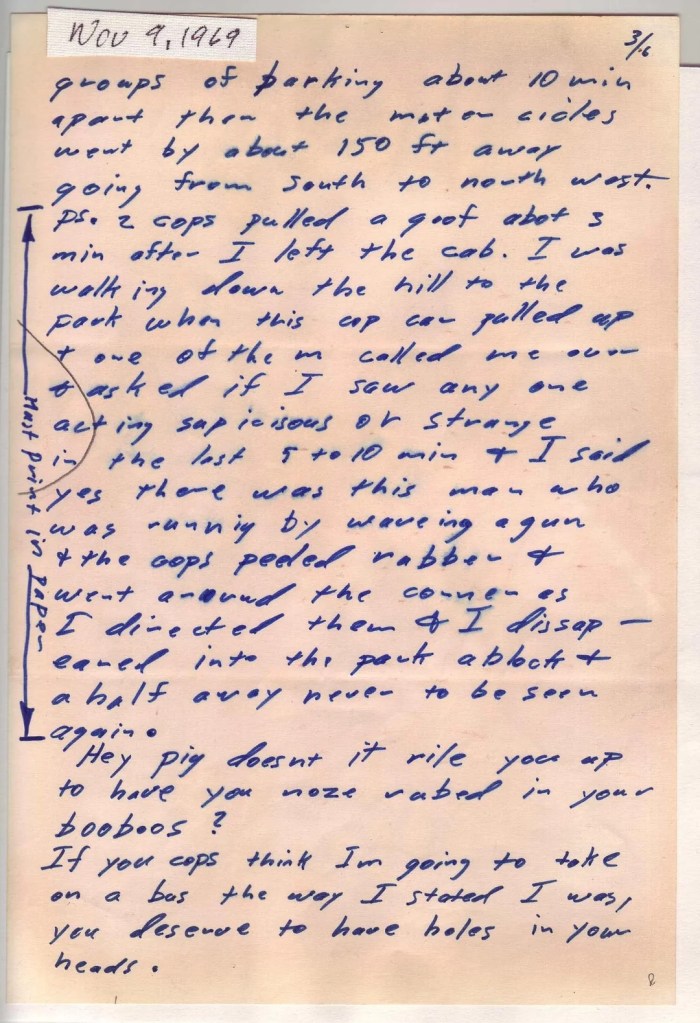 Nov 9, 1969
3/6
groups of parking about 10 min
apart then the motor cicles
went by about 150 ft away
going from south to north west.
ps. 2 cops pulled a goof abot 3
min after I left the cab. I was
walking down the hill to the
park when this cop car pulled up
+ one of them called me over
+ asked if I saw any one
acting sapicisous or strange
in the last 5 to 10 min + I said
yes there was this man who
was runnig by waveing a gun
+ the cops peeled rubber +
went around the corner as
I directed them + I dissap—
eared into the park a block +
a half away never to be seen
again.
Must print in paper
Hey pig doesnt it rile you up
to have you noze rubed in your
booboos ?
If you cops think Im going to take
on a bus the way I stated I was,
you deserve to have holes in your
heads.